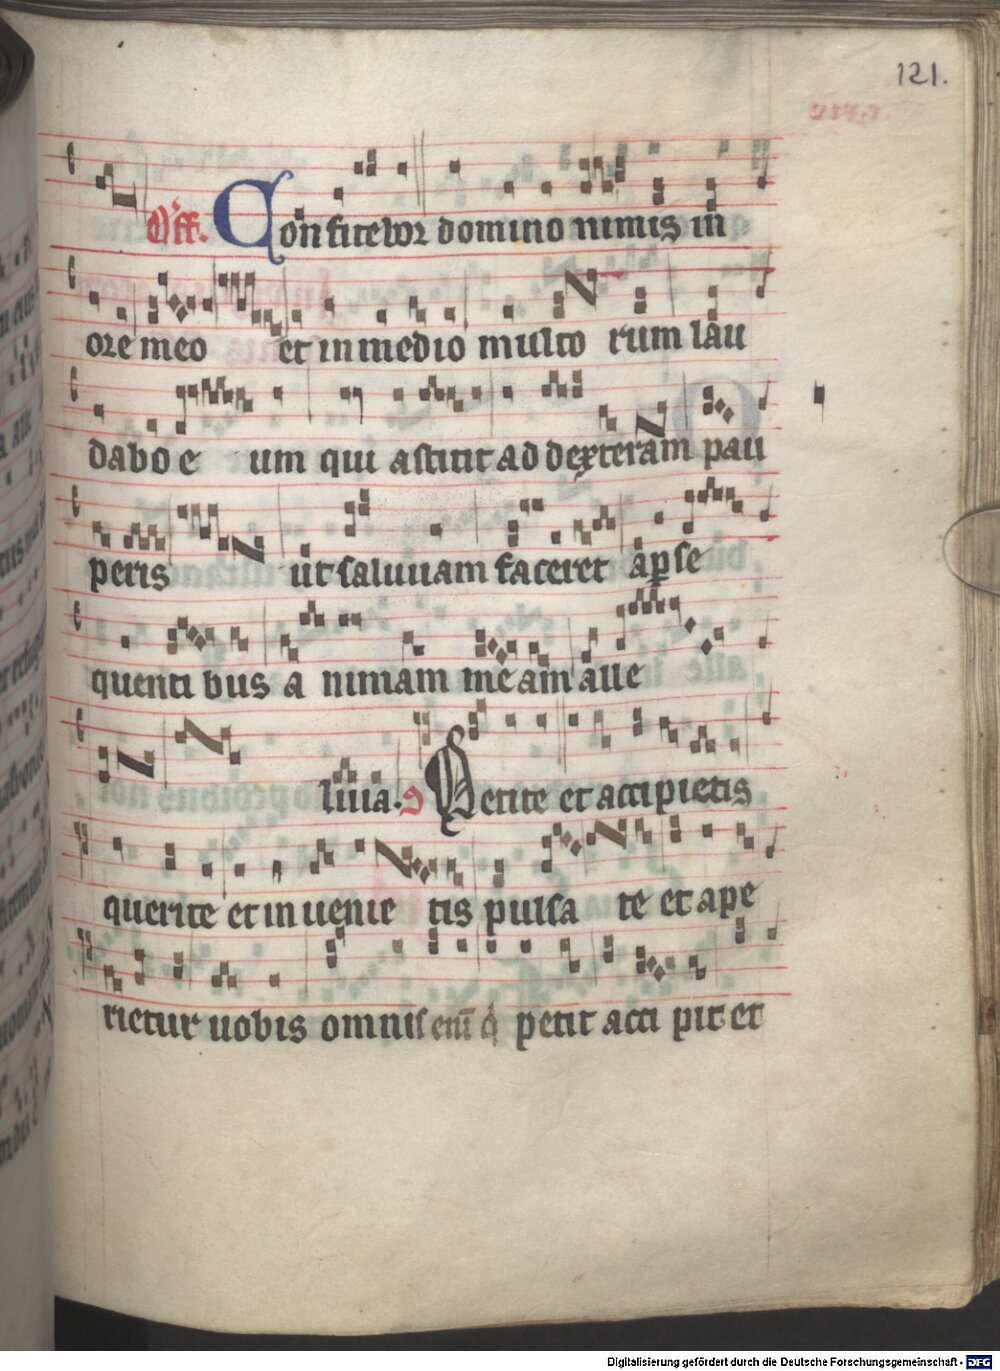 121.
Off. Confitebor domino nimis in
ore meo et in medio multo rum lau
dabo e um qui astitit ad dexteram pau
peris ut saluuam faceret a perse
quenti bus a nimam meam alle
luia. Petite et accipietis
querite et in uenie tis pulsa te et ape
rietur uobis omnis eni q petit acci pit et
Digitalisierung gefördert durch die Deutsche Forschungsgemeinschaft - DFG